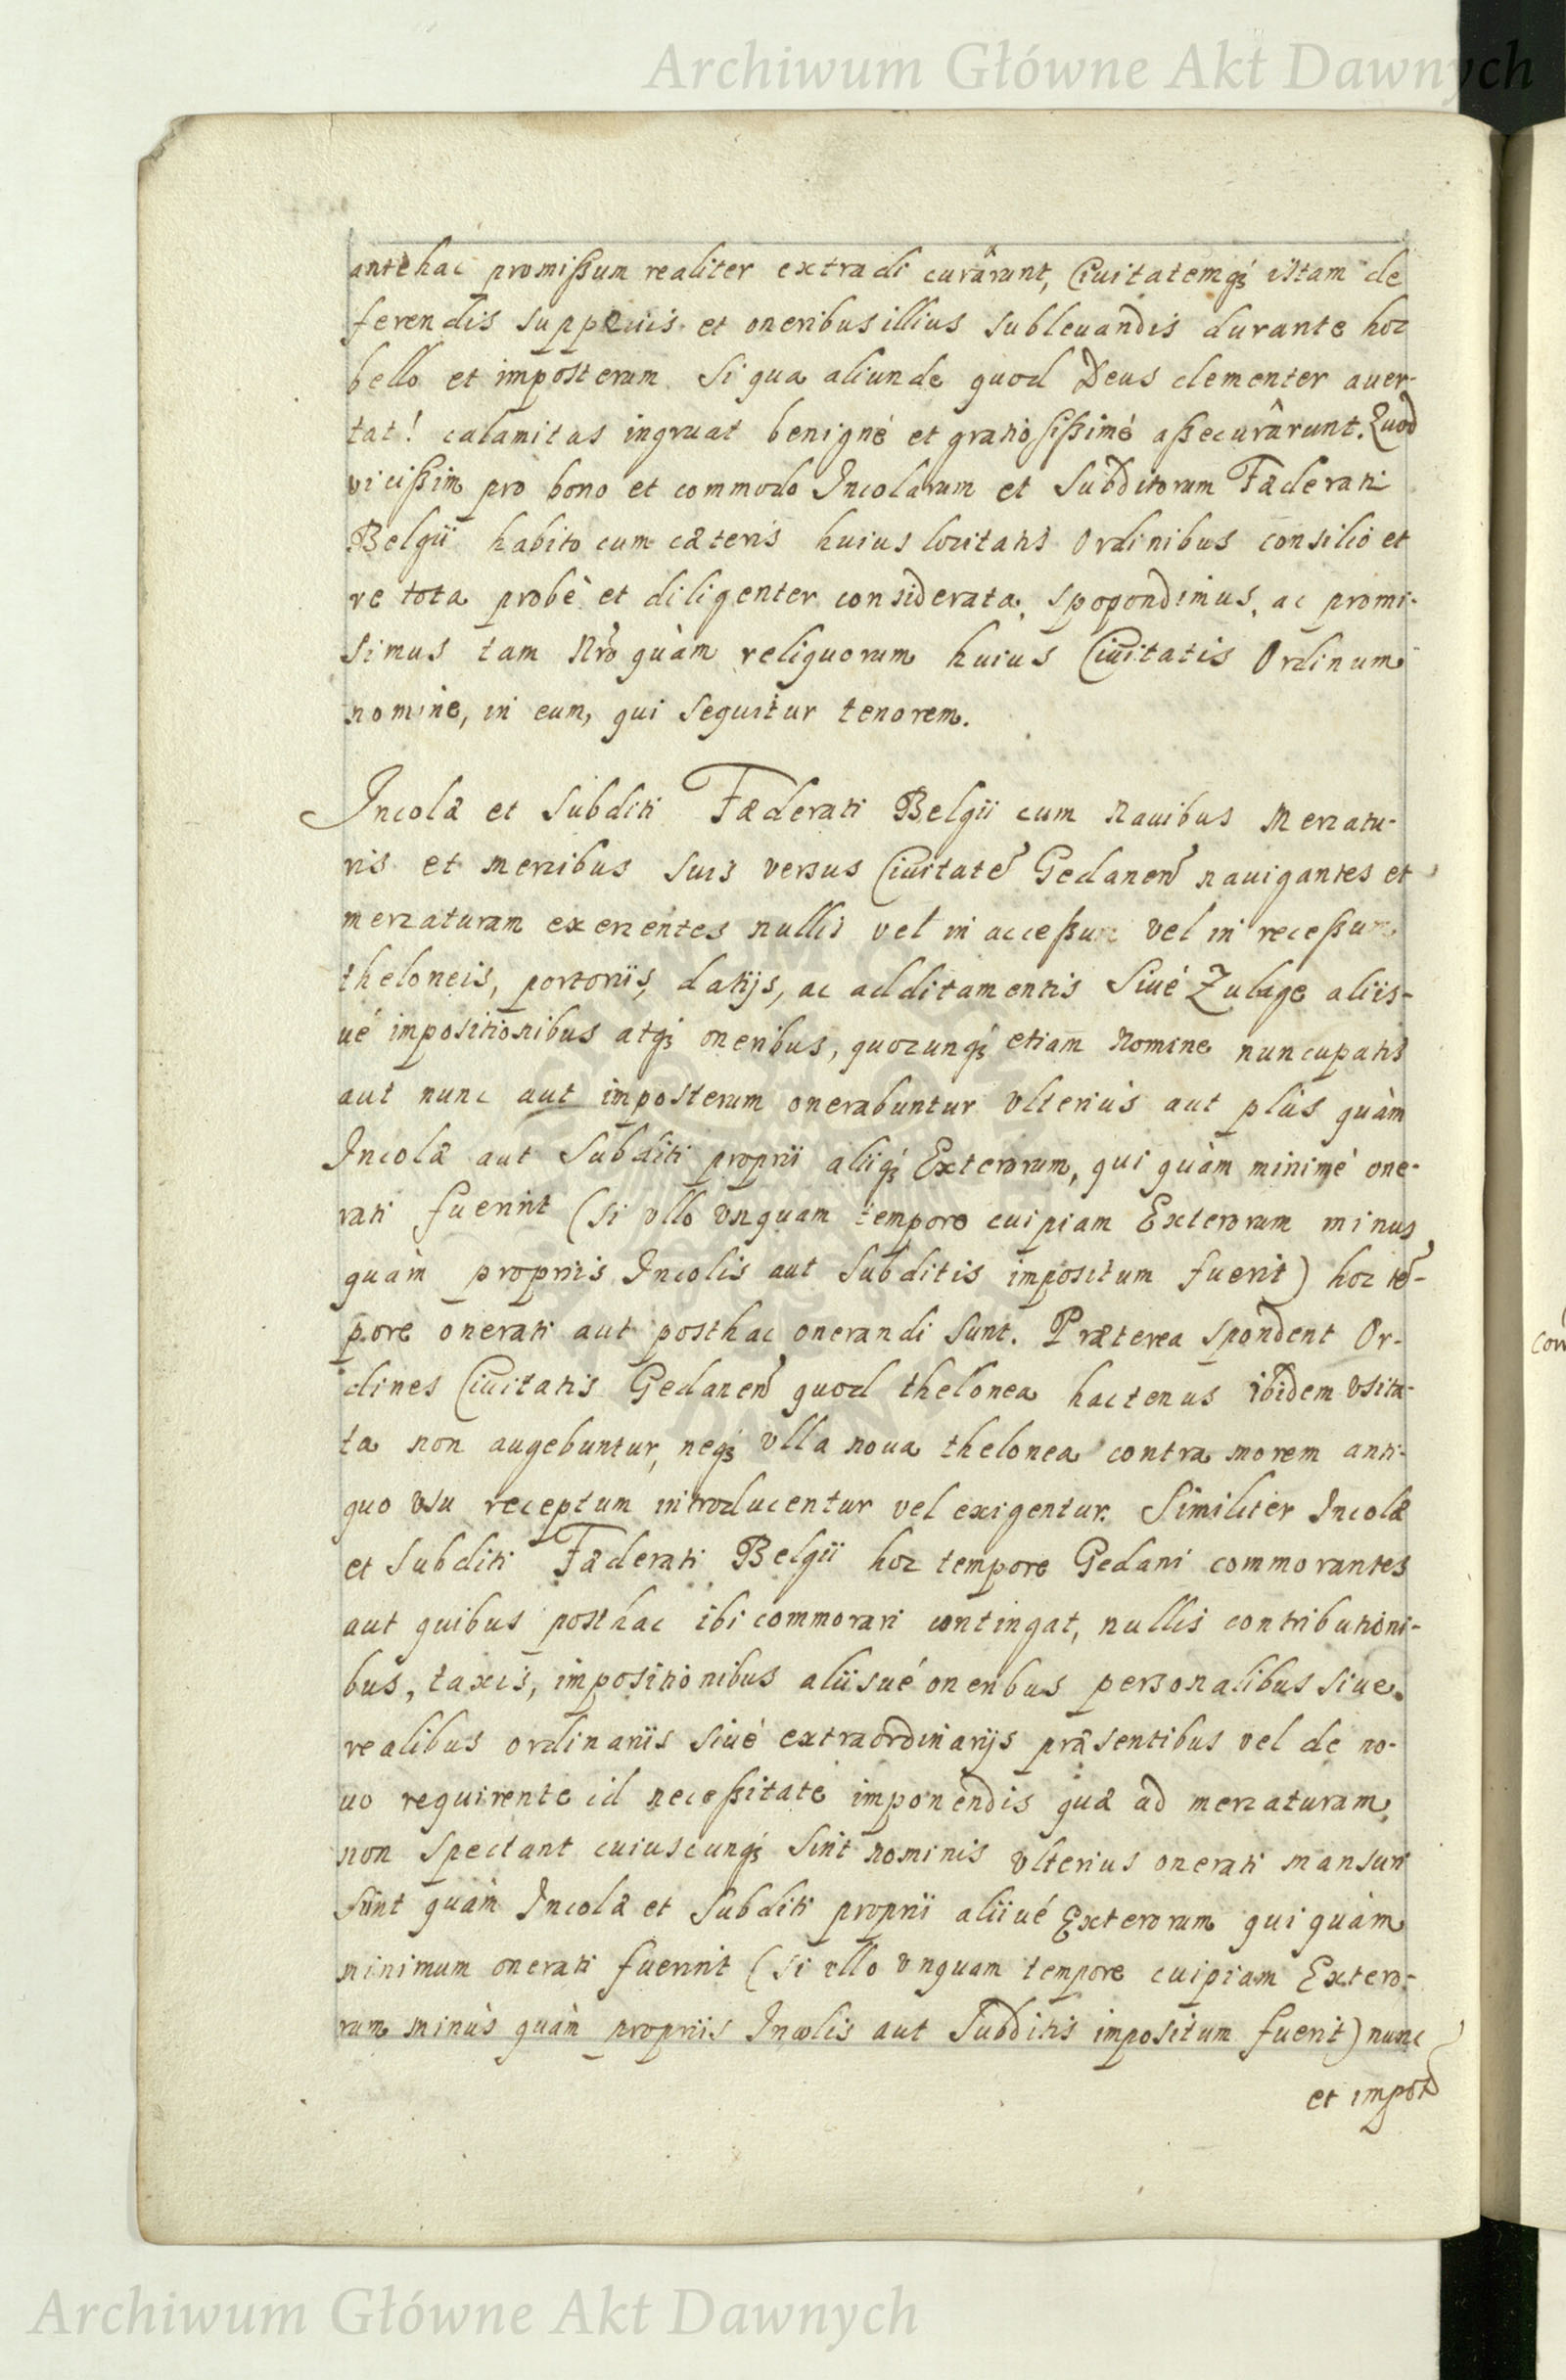 Archiwum Główne Akt Dawnych
antehac promißum realiter extradi curârunt, Civitatemq́ʒ istam de
ferendis suppetiis et oneribus illius subleuandis durante hoc
bello et imposterum si qua aliunde quod Deus clementer auer-
tat! calamitas ingruat benigné et gratiosißimé aßecurârunt. Quod
vicißim pro bono et commodo Incolarum et Subditorum Fæderati
Belgii habito cum cæteris huius Civitatis Ordinibus consilio et
re tota probè et diligenter considerata, spopondimus, ac promi-
simus tam Nrõ quàm reliquorum huius Civitatis Ordinum
nomine, in eum, qui sequitur tenorem.
Incolæ et Subditi Fæderati Belgii cum Nauibus Mercatu-
ris et mercibus suis versus Civitatẽ Gedanen̄ nauigantes et
mercaturam exercentes nullis vel in acceßum vel in receßum
theloneis, portoriis, datijs, ac additamentis Siué Zulage aliis-
ué impositionibus atqʒ oneribus, quocunqʒ́ etiam Nomine nuncupatis
aut nunc aut imposterum onerabuntur vlteriùs aut plùs quàm
Incolæ aut Subditi proprii aliiqʒ́ Exterorum, qui quàm minimé one-
rati fuerint (si vllo vnquam tempore cuipiam Exterorum minus
quàm propriis Incolis aut Subditis impositum fuerit) hoc tẽ-
pore onerati aut posthac onerandi sunt. Præterea spondent Or-
dines Civitatis Gedanen̄ quod thelonea hactenus ibidem vsita-
ta non augebuntur, neqʒ vlla noua thelonea contra morem anti-
quo vsu receptum introducentur vel exigentur. Similiter Incolæ
et Subditi Fæderati Belgii hoc tempore Gedani commorantes
aut quibus posthac ibi commorari contingat, nullis contributioni-
bus, taxis, impositionibus aliisué oneribus personalibus siue
realibus ordinariis siué extraordinarijs præsentibus vel de no-
uo requirente id neceßitate imponendis quæ ad mercaturam
non spectant cuiuscunqʒ́ sint nominis vlterius onerati mansuri
sunt quàm Incolæ et Subditi proprii aliiué Exterorum qui quàm
minimum onerati fuerint (si vllo vnquam tempore cuipiam Extero-
rum minùs quàm propriis Incolis aut Subditis impositum fuerit) nunc
et impost̄
Archiwum Główne Akt Dawnych